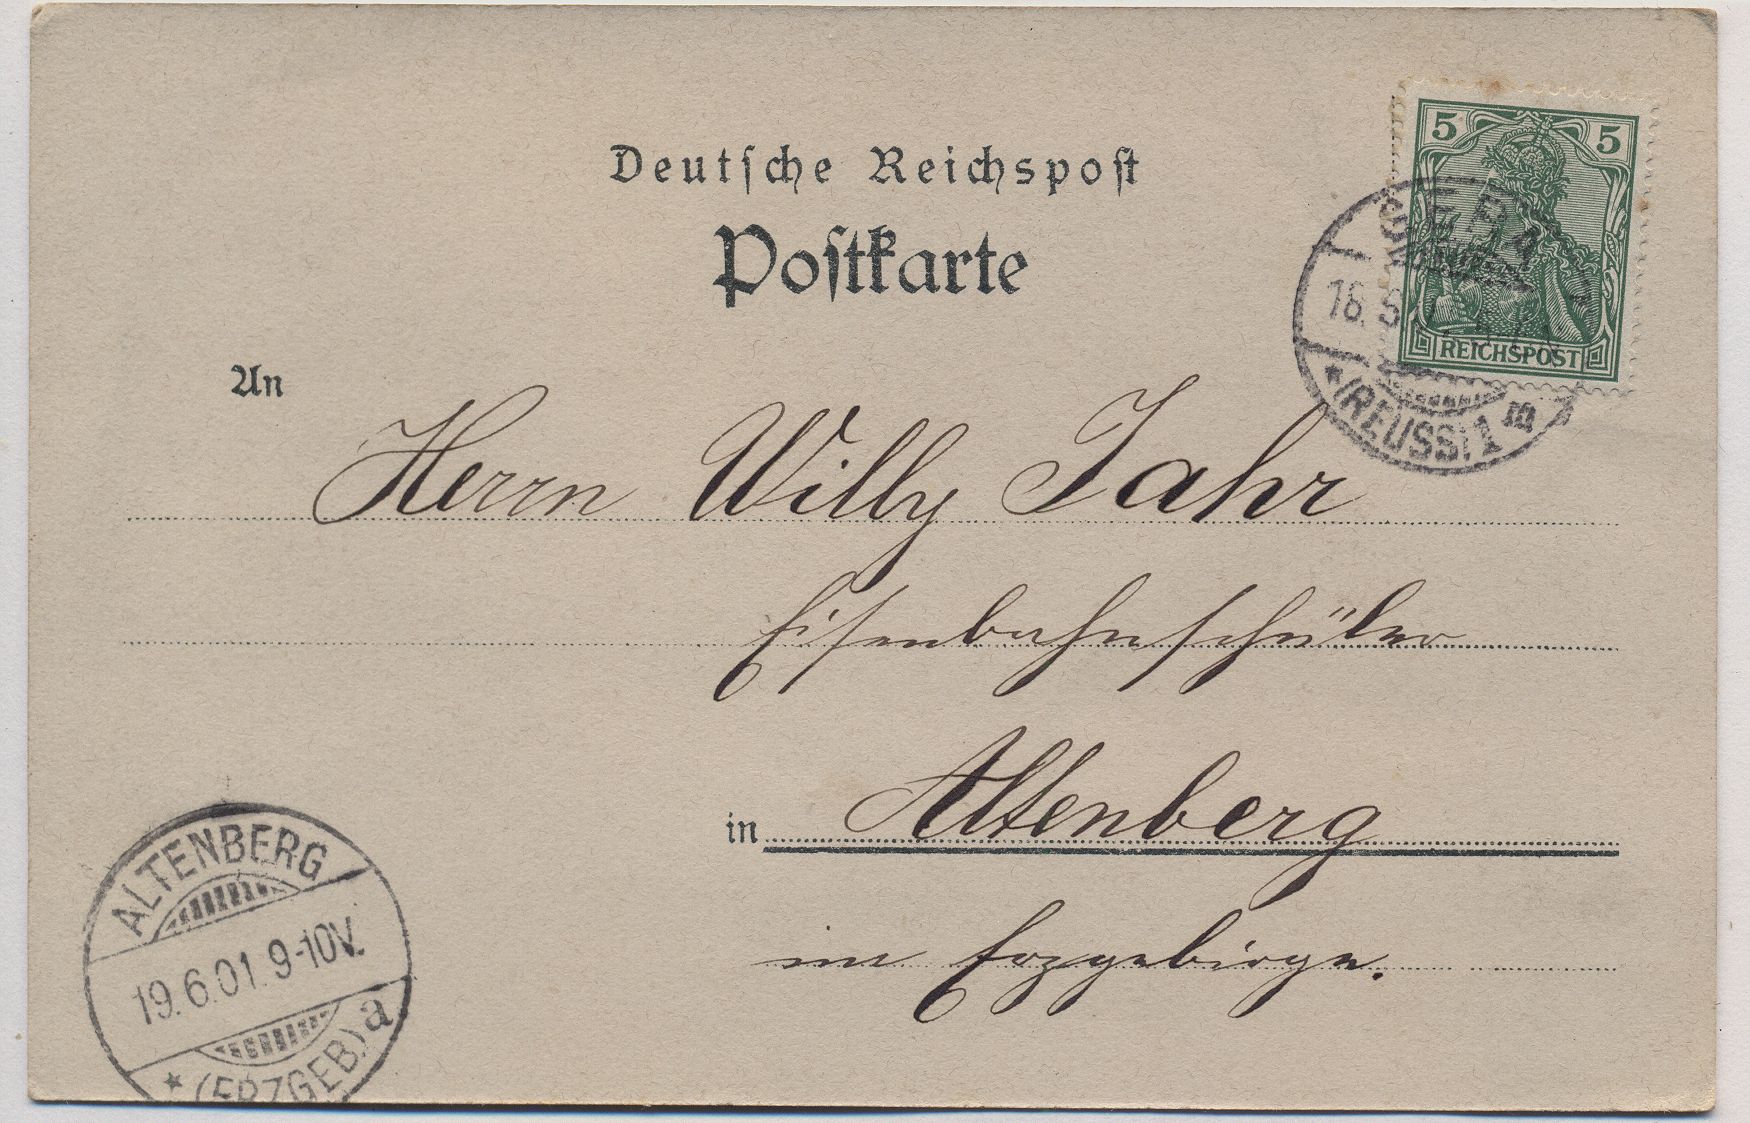 Deutsche Reichspost
Postkarte
5 5
REICHSPOST
GERA
(REUSS) 1
An
Herrn Willy Jahr
Eisenbahnschüler
in Altenberg
im Erzgebirge.
ALTENBERG
19.6.01. 9-10V.
* (ERZGEB.) a